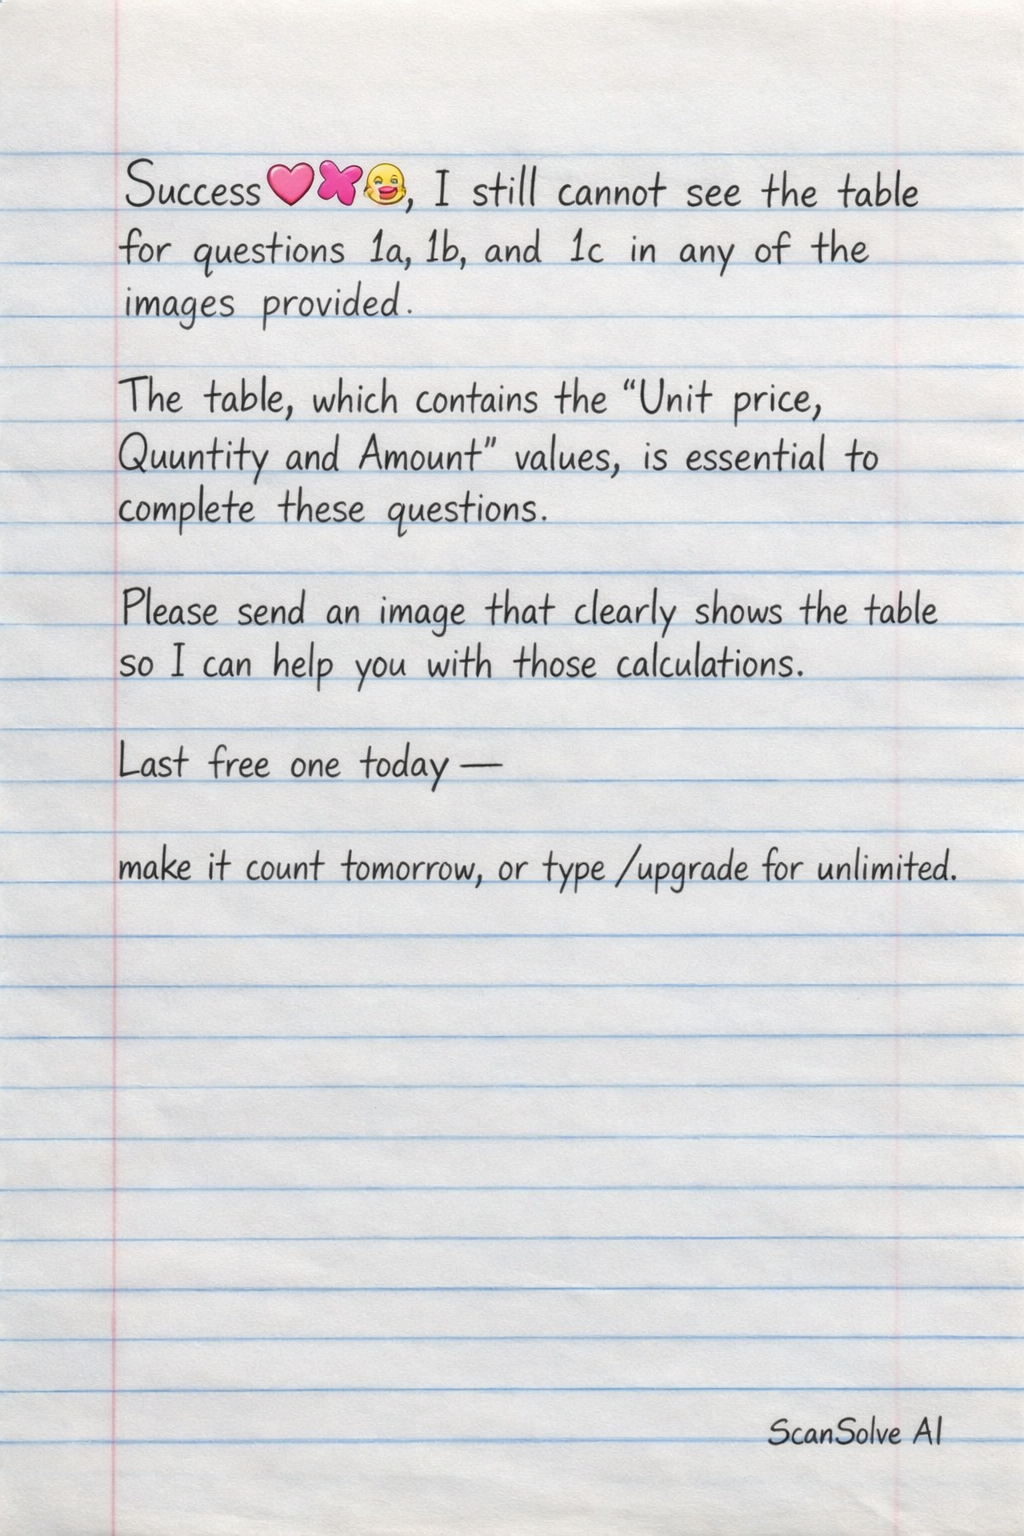 Success🩷, I still cannot see the table
for questions 1a, 1b, and 1c in any of the
images provided.
The table, which contains the “Unit price,
Quuntity and Amount” values, is essential to
complete these questions.
Please send an image that clearly shows the table
so I can help you with those calculations.
Last free one today —
make it count tomorrow, or type /upgrade for unlimited.
ScanSolve AI